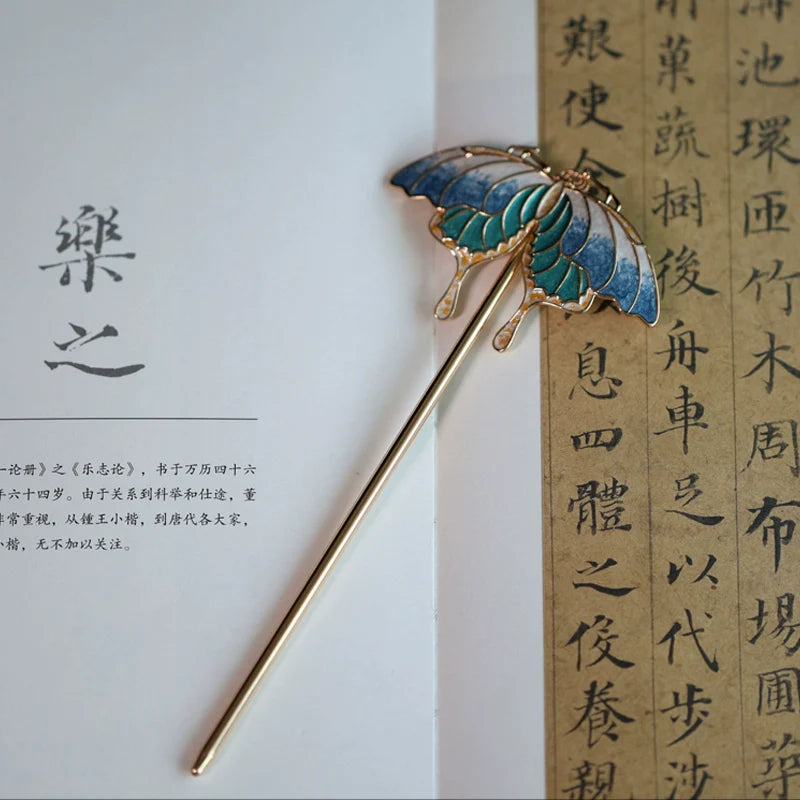 樂之
一论册》之《乐志论》，书于万历四十六
年六十四岁。由于关系到科举和仕途，董
非常重视，从锺王小楷，到唐代各大家，
小楷，无不加以关注。
溝池環匝竹木周布場圃築
前菓蔬樹後舟車足以代步涉
艱使令息四體之役養親